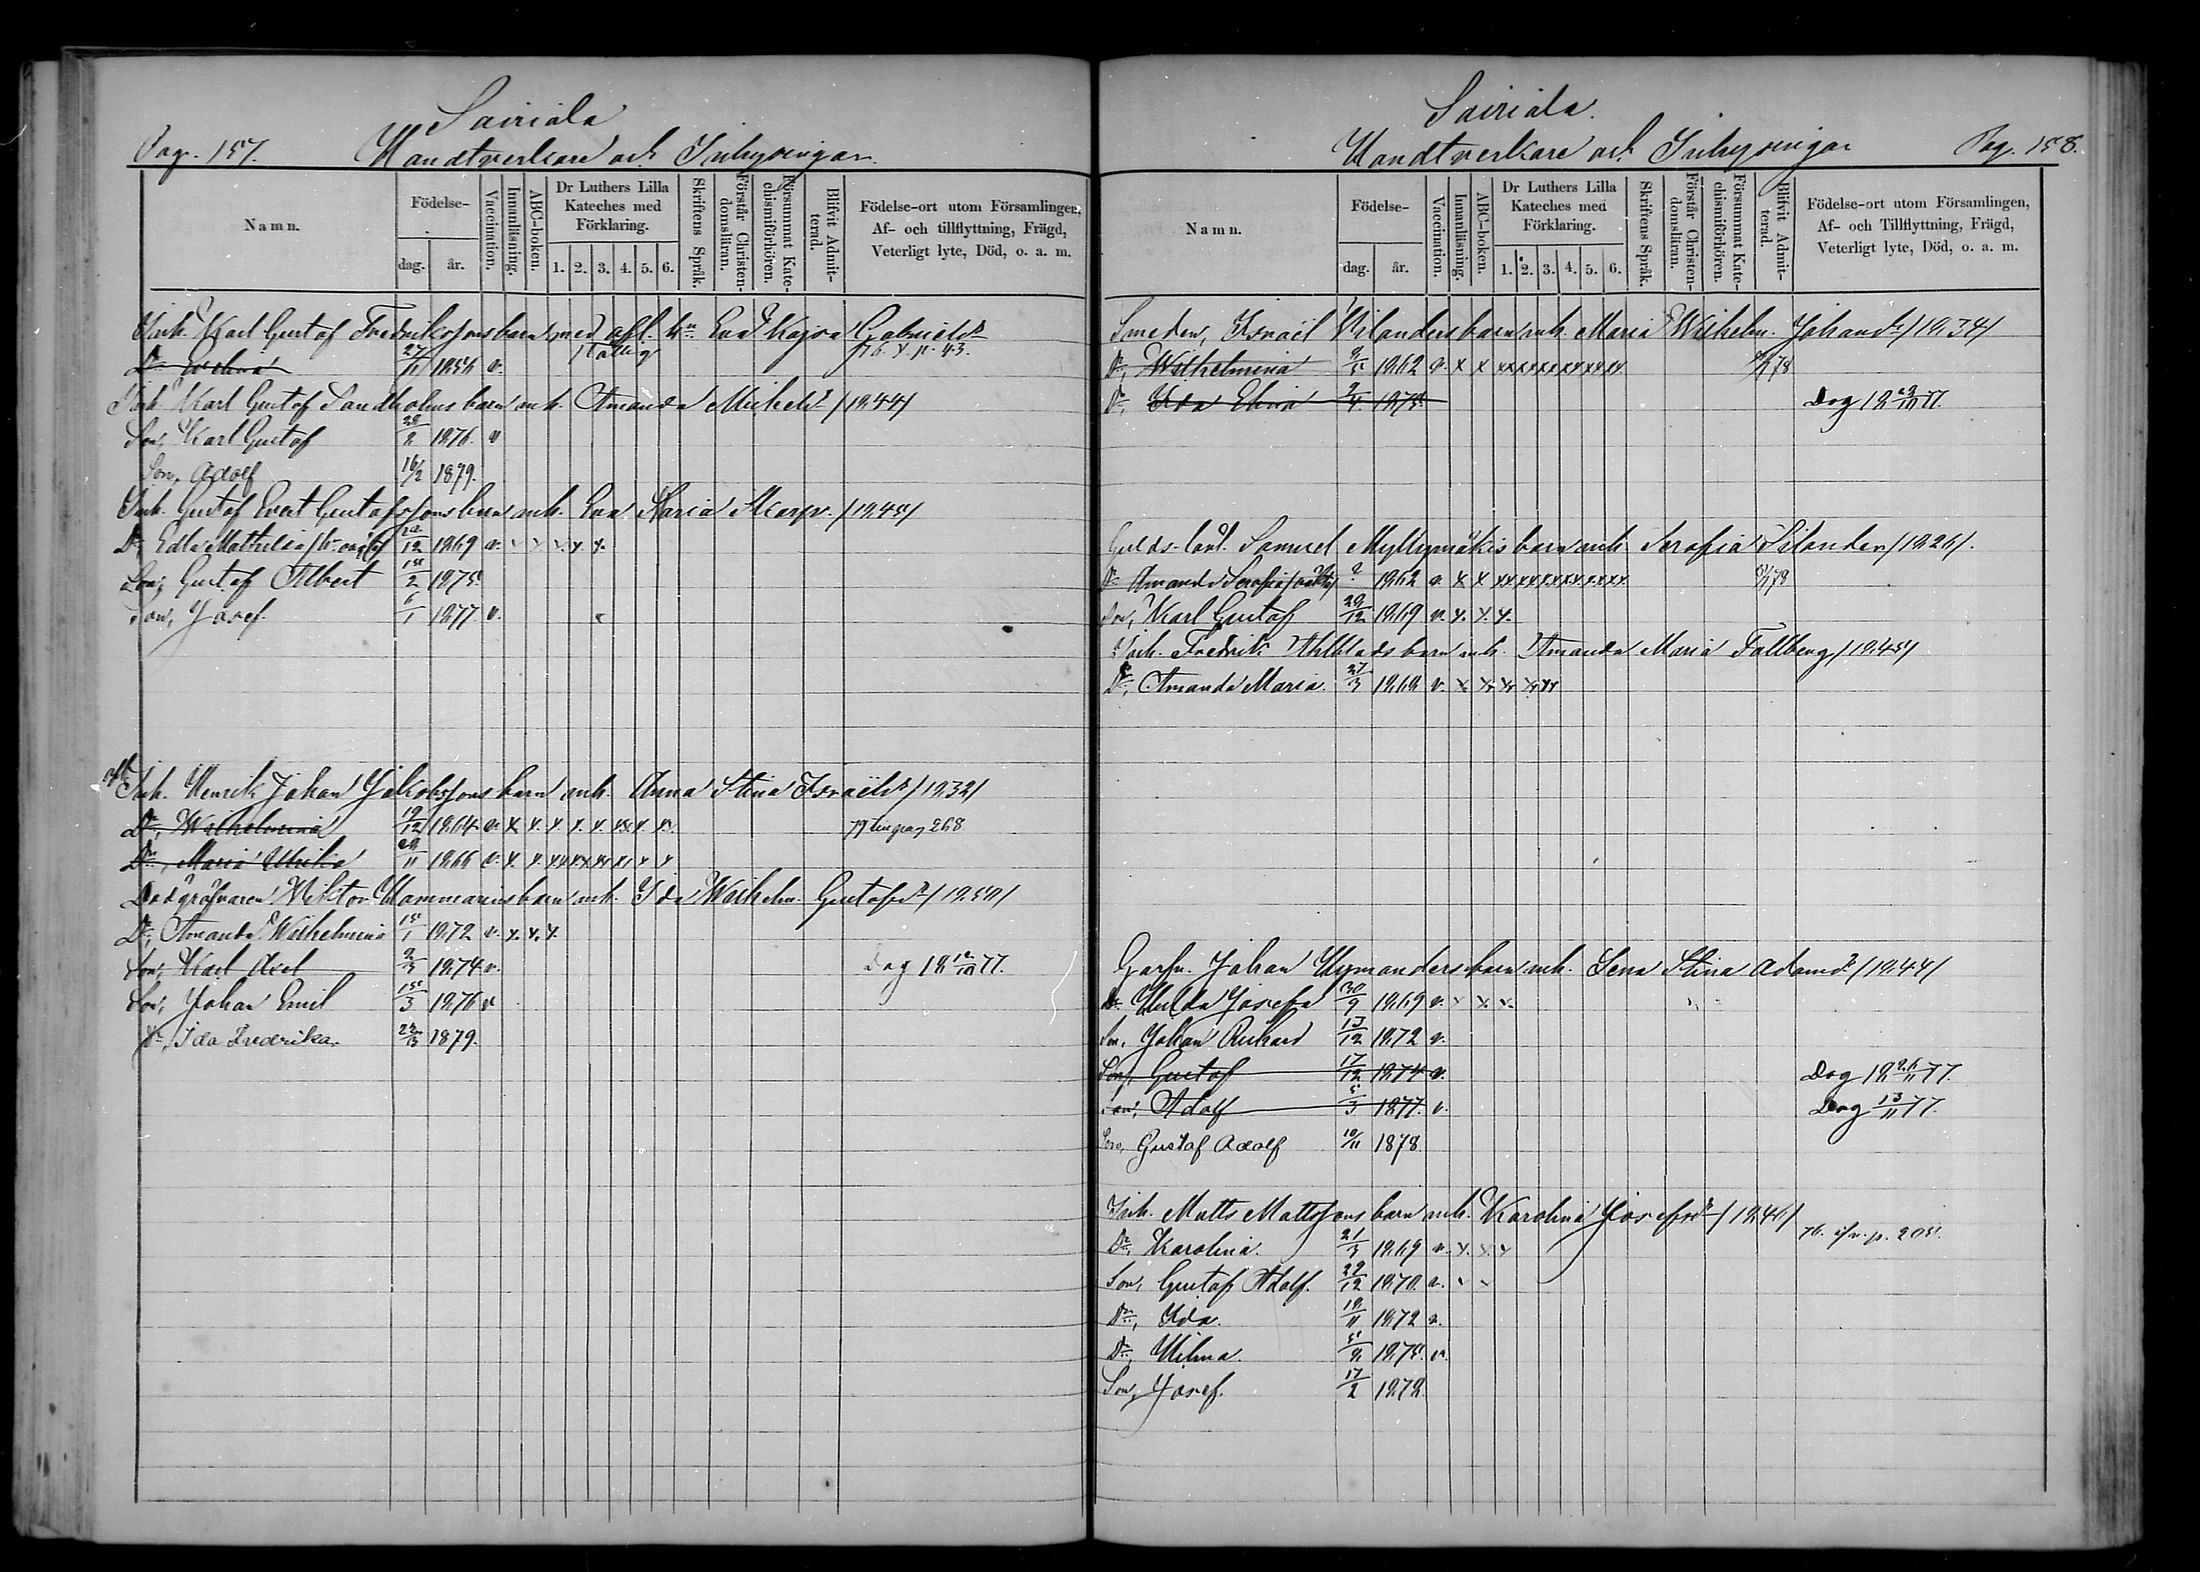 Sairiala
Pag. 157. Handtverkare och Inhysingar.
Namn.
Födelse-
dag. år.
Vaccination.
Innanläsning.
ABC-boken.
Dr Luthers Lilla Kateches med Förklaring.
1. 2. 3. 4. 5. 6.
Skriftens Språk.
Förstår Christendomsläran.
Försummat Katechismiförhören.
Blifvit Admitterad.
Födelse-ort utom Församlingen, Af- och tillflyttning, Frägd, Veterligt lyte, Död, o. a. m.
Inh. Karl Gustaf Fredrikssons barn med afl. h:n Eva Kajsa Gabrielsdr
27/11 1856 v. p. 43.
Inh. Karl Gustaf Sandholms barn m.h. Amanda Mickelsdr /1844/
Son, Karl Gustaf 28/2 1876. v
Son, Adolf 16/2 1879.
Inh. Gustaf Evert Gustafssons barn m.h. Eva Maria /1845/
Dr, Edla Mathilda 1869 v. x x x x x
Son, Gustaf Albert 15/2 1875.
Son, Josef. 6/1 1877. v.
Inh. Henrik Johan Jakobssons barn m.h. Anna Stina Israelsdr /1832/
Dr, Wilhelmina 19/12 1864 v. x x x x x xx x x 268
Dr, Maria Ulrika 28/11 1866 v. x x xx xx xx xx x x
Viktor Hammarins barn m.h. Ida Wilhelm. Gustafsdr /1850/
Dr, Amanda Wilhelmina 15/1 1872 v. x. x. x.
Son, Karl Axel 2/3 1874 v. Dog 18 12/10 77.
Son, Johan Emil 15/3 1876 v
Dr, Ida Fredrika. 1879.
Sairiala.
Handtverkare och Inhysingar Pag. 158.
Namn.
Födelse-
dag. år.
Vaccination.
Innanläsning.
ABC-boken.
Dr Luthers Lilla Kateches med Förklaring.
1. 2. 3. 4. 5. 6.
Skriftens Språk.
Förstår Christendomsläran.
Försummat Katechismiförhören.
Blifvit Admitterad.
Födelse-ort utom Församlingen, Af- och Tillflyttning, Frägd, Veterligt lyte, Död, o. a. m.
Smeden, Israël Vilanders barn m.h. Maria Wilhelm. Johansdr /1834/
Dr, Wilhelmina 9/5 1862 v. x x xx xx xx xx xx xx 78
Dr, Ida Elina 2/4 1875. Dog 18 23/10 77.
Samuel Myllymäkis barn m.h. Serafia Silander /1826/.
Dr Amanda Serafia 1862 v. x x xx xx xx xx xx xx 78
Son, Karl Gustaf 29/12 1869 v. x. x. x.
Inh. Fredrik Ahlblads barn m.h. Amanda Maria Fallberg /1845/
Dr, Amanda Maria. 27/3 1868 v. x x x xx
Garfv. Johan Nymanders barn m.h. Lena Stina Adamsdr /1844/
Dr Hulda Josefa 30/9 1869 v. x x x
Son, Johan Rickard 13/12 1872 v.
Son, Gustaf 17/12 1874 v. Dog 18 26/11 77.
Son, Adolf 5/3 1877. v. Dog 13/11 77.
Son, Gustaf Adolf 10/11 1878.
Inh. Matts Mattssons barn m.h. Karolina Josefsdr /1846/
76. p. 205.
Dr, Karolina. 21/3 1869 v. x. x. x
Son, Gustaf Adolf. 29/12 1870. v.
Dr, Ida. 18/11 1872 v.
Dr, Hilma. 5/9 1875. v.
Son, Josef. 17/2 1878